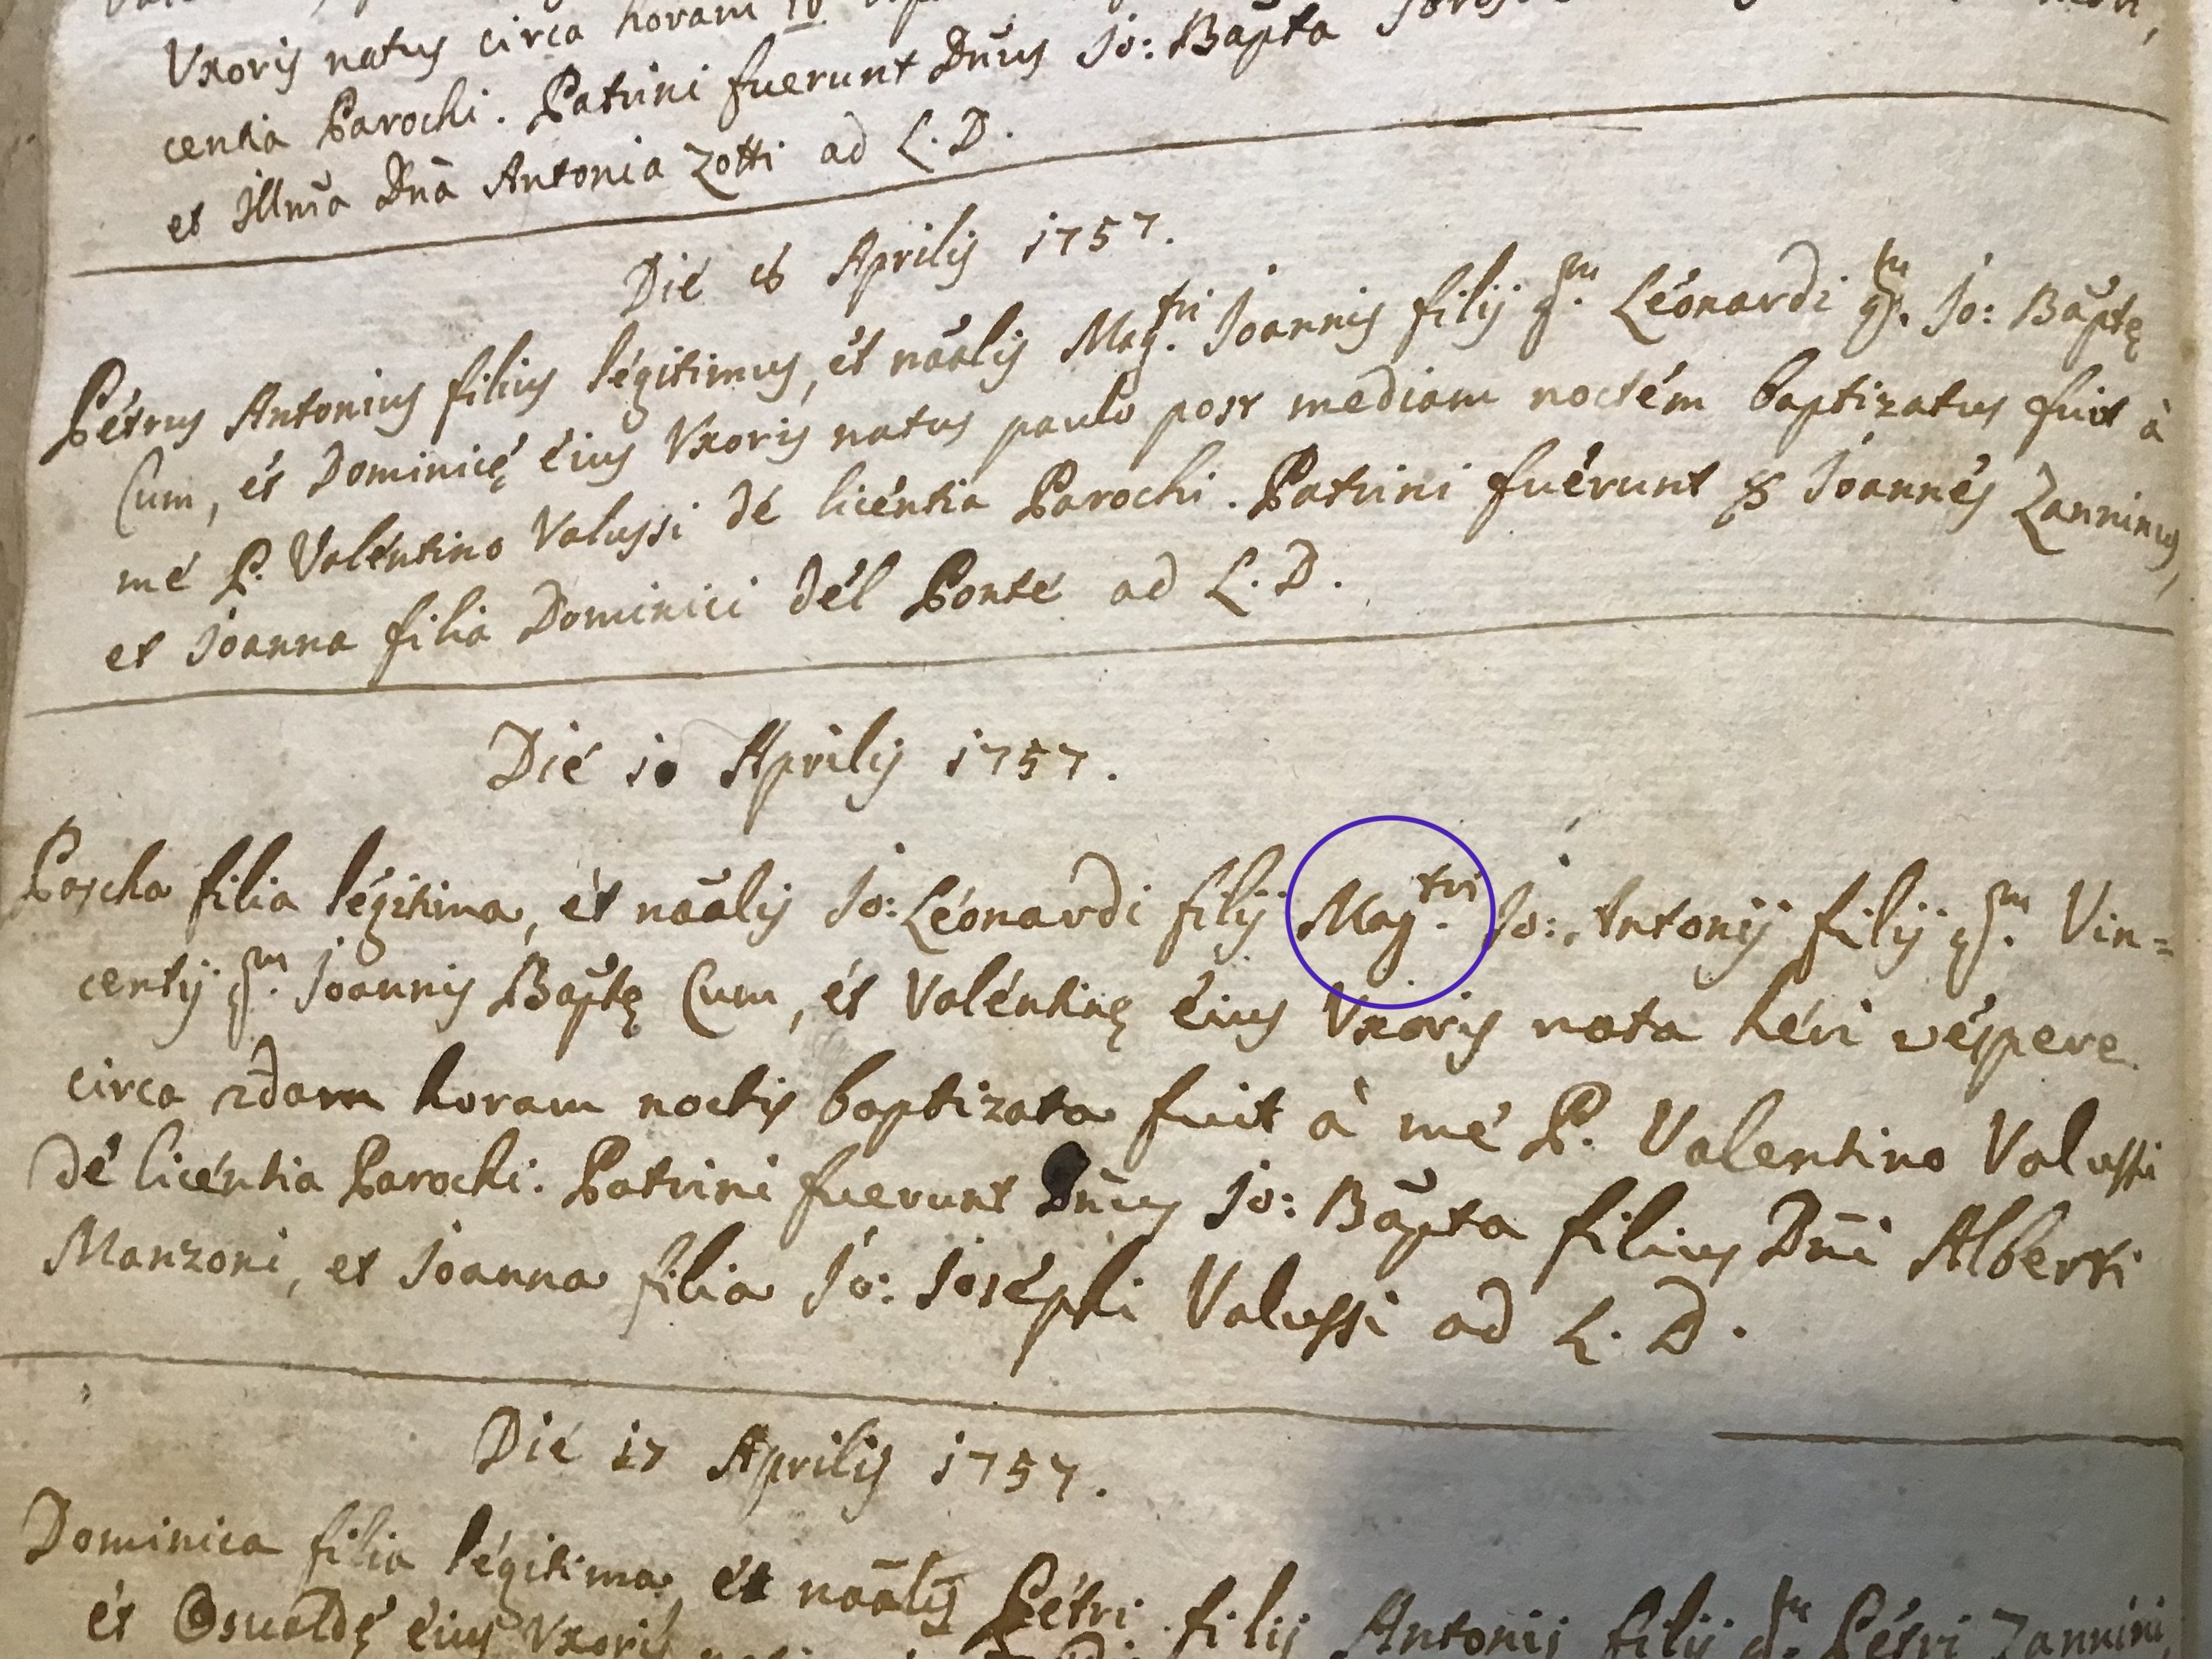 Uxoris natus circa horam 18
centia Parochi. Patrini fuerunt Dn̄us Jo: Bap̄ta
et Illm̄a Dn̄a Antonia Zotti ad L. D.
Die 8 Aprilis 1757.
Petrus Antonius filius legitimus, et nāalis Mag.tri Joannis filij q.m Leonardi q.m Jo: Bap̄tę
Cum, et Dominicę eius Uxoris natus paulo post mediam noctem baptizatus fuit à
me P. Valentino Valussi de licentia Parochi. Patrini fuerunt Joannes Zanninus,
et Joanna filia Dominici del Ponte ad L. D.
Die 10 Aprilis 1757.
Pascha filia legitima, et nāalis Jo: Leonardi filij Mag.tri Jo: Antonij filij q.m Vin=
centij q.m Joannis Bap̄tę Cum, et Valentinę eius Uxoris nata heri vespere
circa 2dam horam noctis baptizata fuit à me P. Valentino Valussi
de licentia Parochi. Patrini fuerunt Dn̄us Jo: Bap̄ta filius Dn̄i Alberti
Manzoni, et Joanna filia Jo: Josephi Valussi ad L. D.
Die 17 Aprilis 1757.
Dominica filia legitima, et nāalis Petri filij Antonij filij q.m Petri Zannini,
et Osualdę eius Uxoris